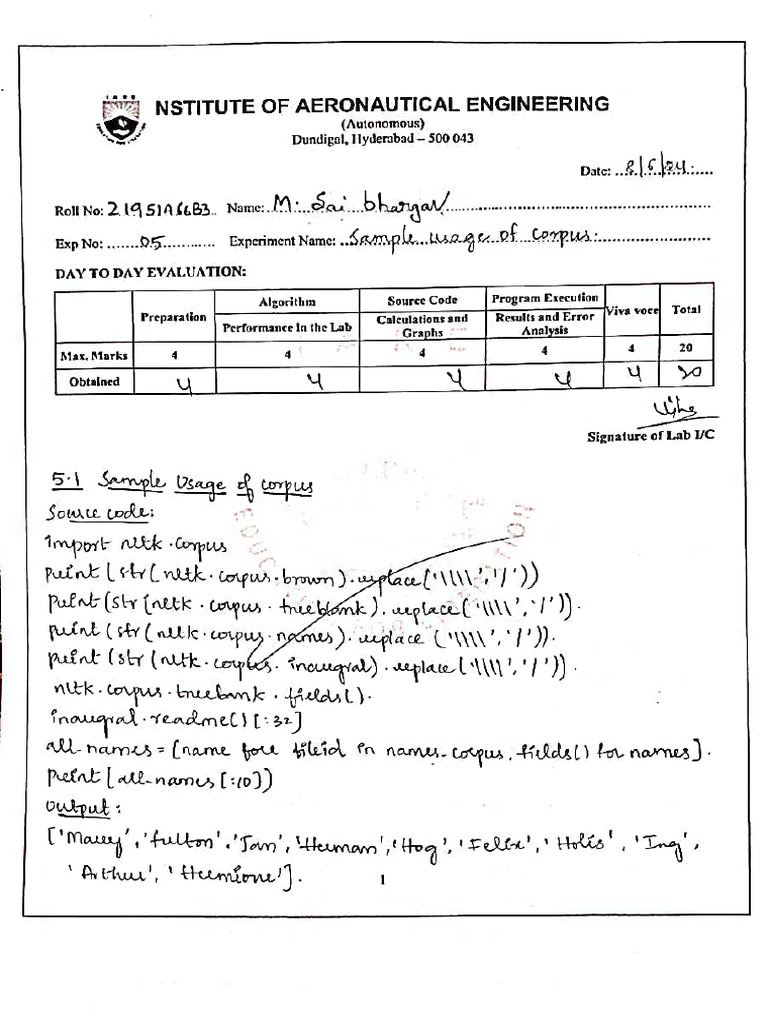 IARE
NSTITUTE OF AERONAUTICAL ENGINEERING
(Autonomous)
Dundigal, Hyderabad – 500 043
Date: 8/5/24
Roll No: 21951A66B3 Name: M. Sai bhargav
Exp No: 05 Experiment Name: Sample usage of corpus.
DAY TO DAY EVALUATION:
Preparation Algorithm Source Code Program Execution Viva voce Total
Performance in the Lab Calculations and Graphs Results and Error Analysis
Max. Marks 4 4 4 4 4 20
Obtained 4 4 4 4 4 20
Signature of Lab I/C
5.1 Sample Usage of corpus
Source code:
import nltk.corpus
print (str(nltk.corpus.brown).replace('\\\\','/'))
print(str(nltk.corpus.treebank).replace('\\\\','/')).
print (str(nltk.corpus.names).replace ('\\\\','/')).
print (str(nltk.corpus.inaugral).replace('\\\\','/')).
nltk.corpus.treebank.fields().
inaugral.readme()[:32]
all-names = [name for fileid in names-corpus.fields() for names].
print[all-names[:10])
Output:
['Mauey','fulton','Jan','Herman','Hog','Felix','Holis','Ing',
'Arthur','Hermione'].
1